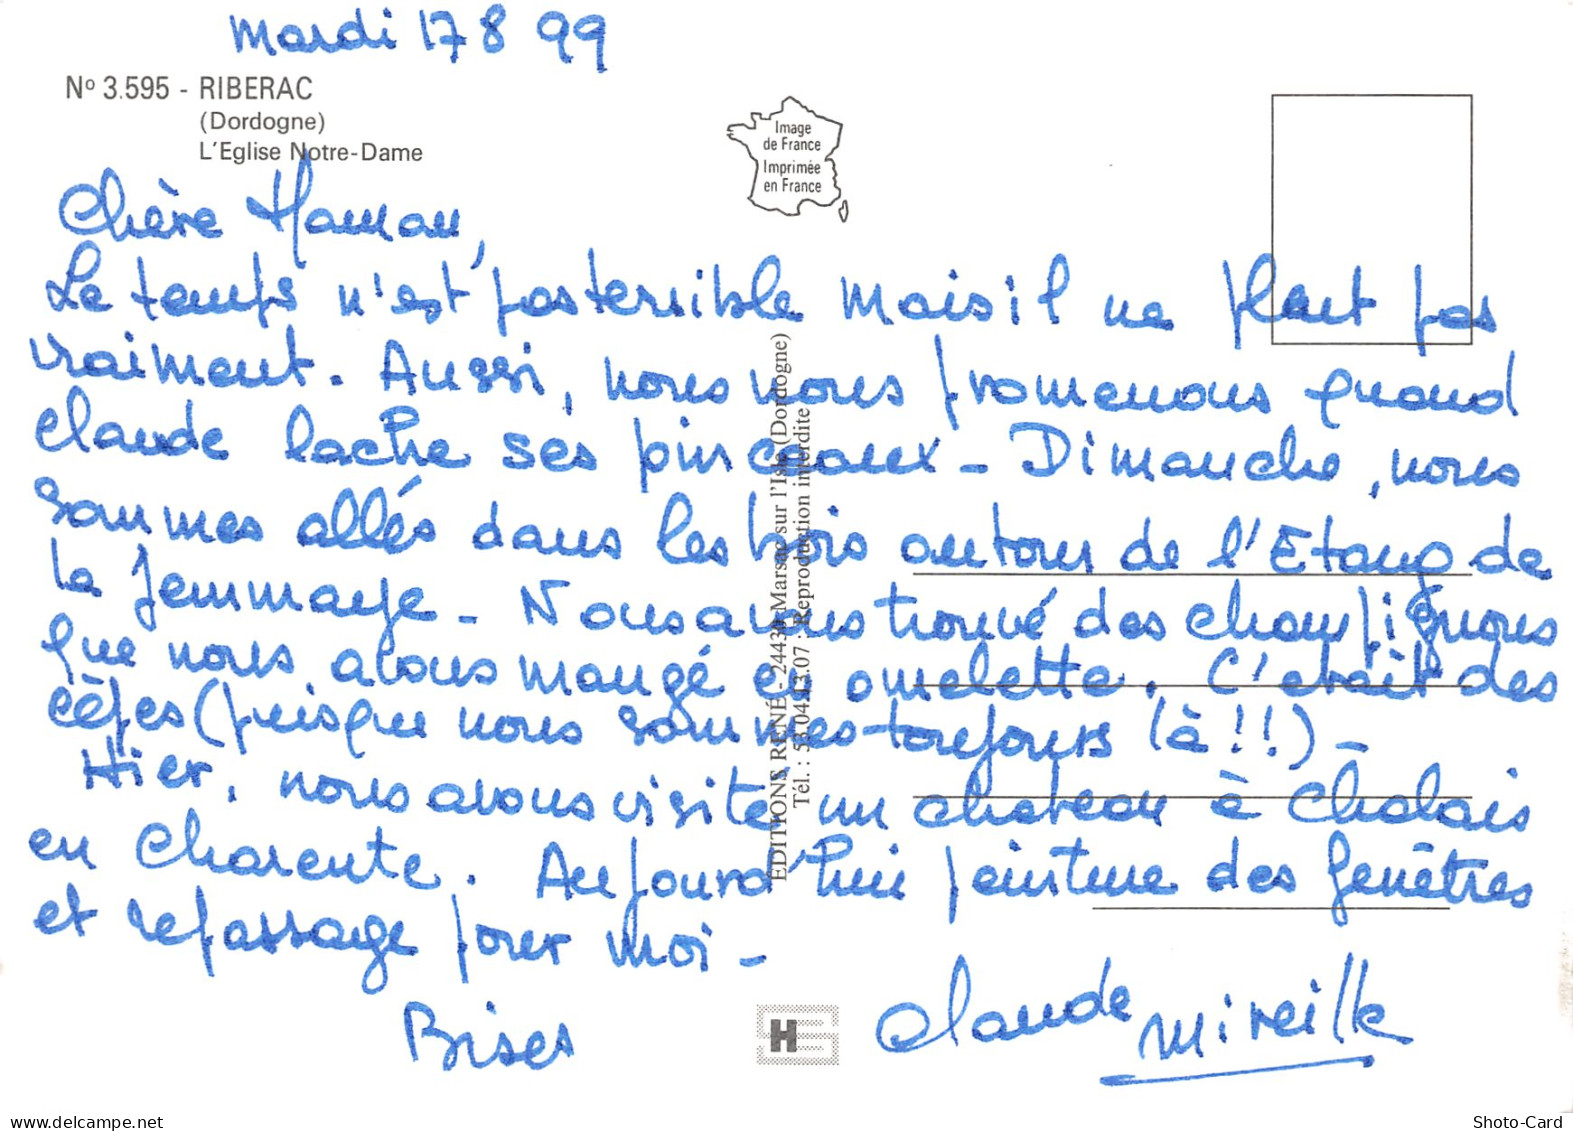 Mardi 17 8 99
Nº 3.595 - RIBERAC
(Dordogne)
L'Eglise Notre-Dame
Image
de France
Imprimée
en France
Chère Maman,
Le temps n'est pas terrible mais il ne pleut pas
vraiment. Aussi, nous nous promenons quand
Claude lache ses pinceaux - Dimanche, nous
sommes allés dans les bois autour de l'Etang de
la Jemmaye - Nous avons trouvé des champignons
que nous avons mangé en omelette. C'était des
cèpes (puisque nous sommes toujours là !!) -
Hier, nous avons visité un chateau à Chalais
en Charente. Aujourd'hui peinture des fenêtres
et repassage pour moi -
Bises
Claude
Mireille
EDITIONS RENÉ - 24430 Marsac sur l'Isle (Dordogne)
Tél. : 53.04.43.07 : Reproduction interdite
delcampe.net
Shoto-Card